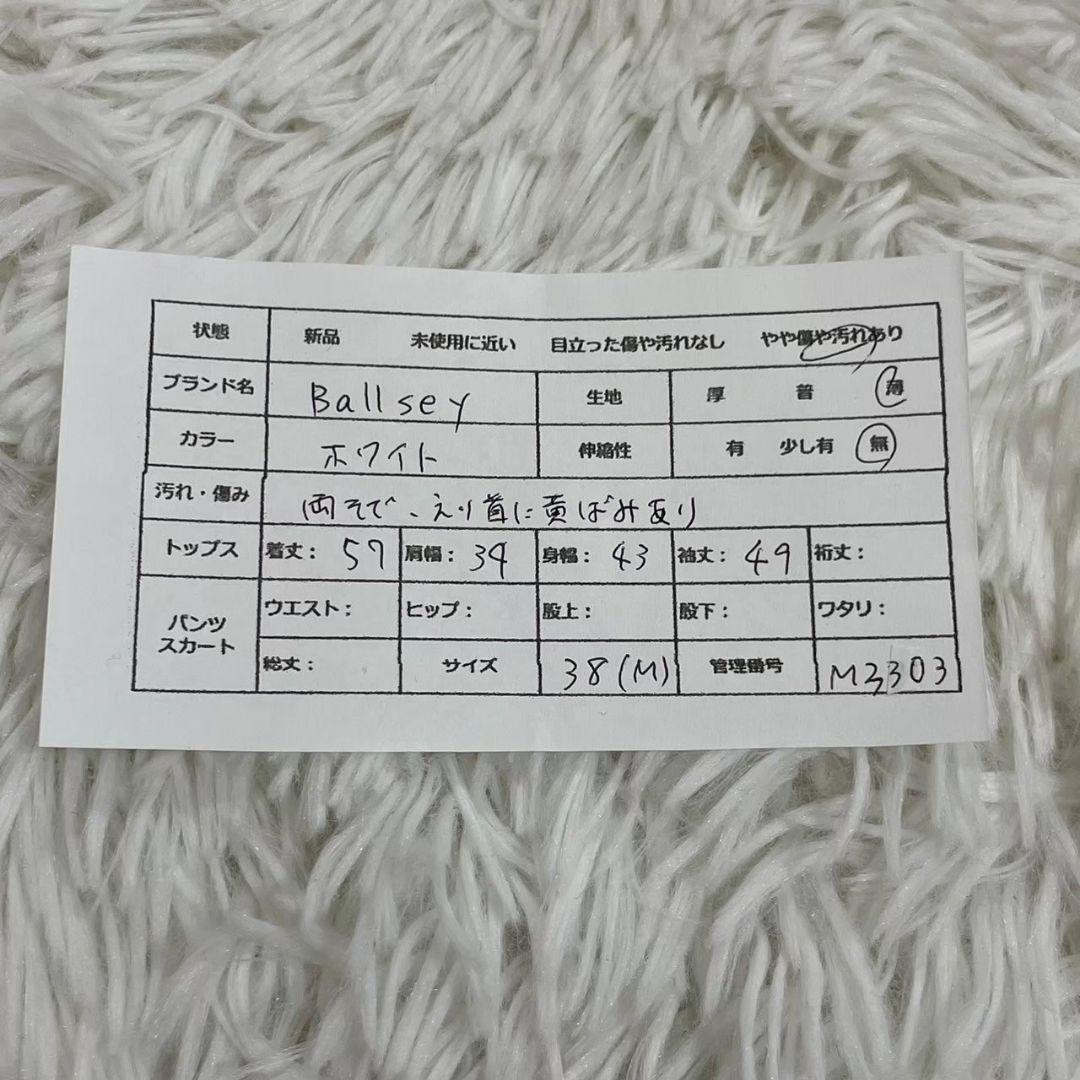 状態 新品 未使用に近い 目立った傷や汚れなし やや傷や汚れあり
ブランド名 Ballsey 生地 厚 普 薄
カラー ホワイト 伸縮性 有 少し有 無
汚れ・傷み 両そで、えり首に黄ばみあり
トップス 着丈: 57 肩幅: 34 身幅: 43 袖丈: 49 裄丈:
パンツ スカート ウエスト: ヒップ: 股上: 股下: ワタリ:
総丈: サイズ 38(M) 管理番号 M3303